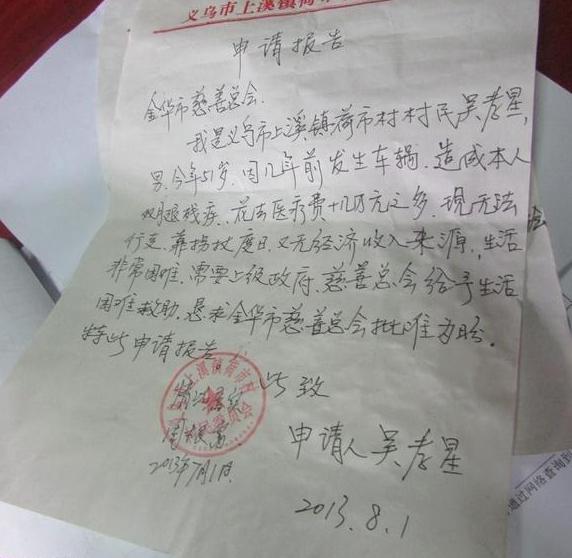 义乌市上溪镇荷
申请报告
金华市慈善总会.
我是义乌市上溪镇荷市村村民吴孝星,
男.今年51岁.因几年前发生车祸.造成本人
双腿残疾.花去医疗费十几万元之多.现无法
行走.靠拐杖度日.又无经济收入来源.生活
非常困难.需要上级政府.慈善总会给予生活
困难救助.恳求金华市慈善总会批准为盼.
特此申请报告.
此致
上溪镇荷市村
情况属实
2013年7月1日
申请人吴孝星
2013.8.1
通过网络查询到